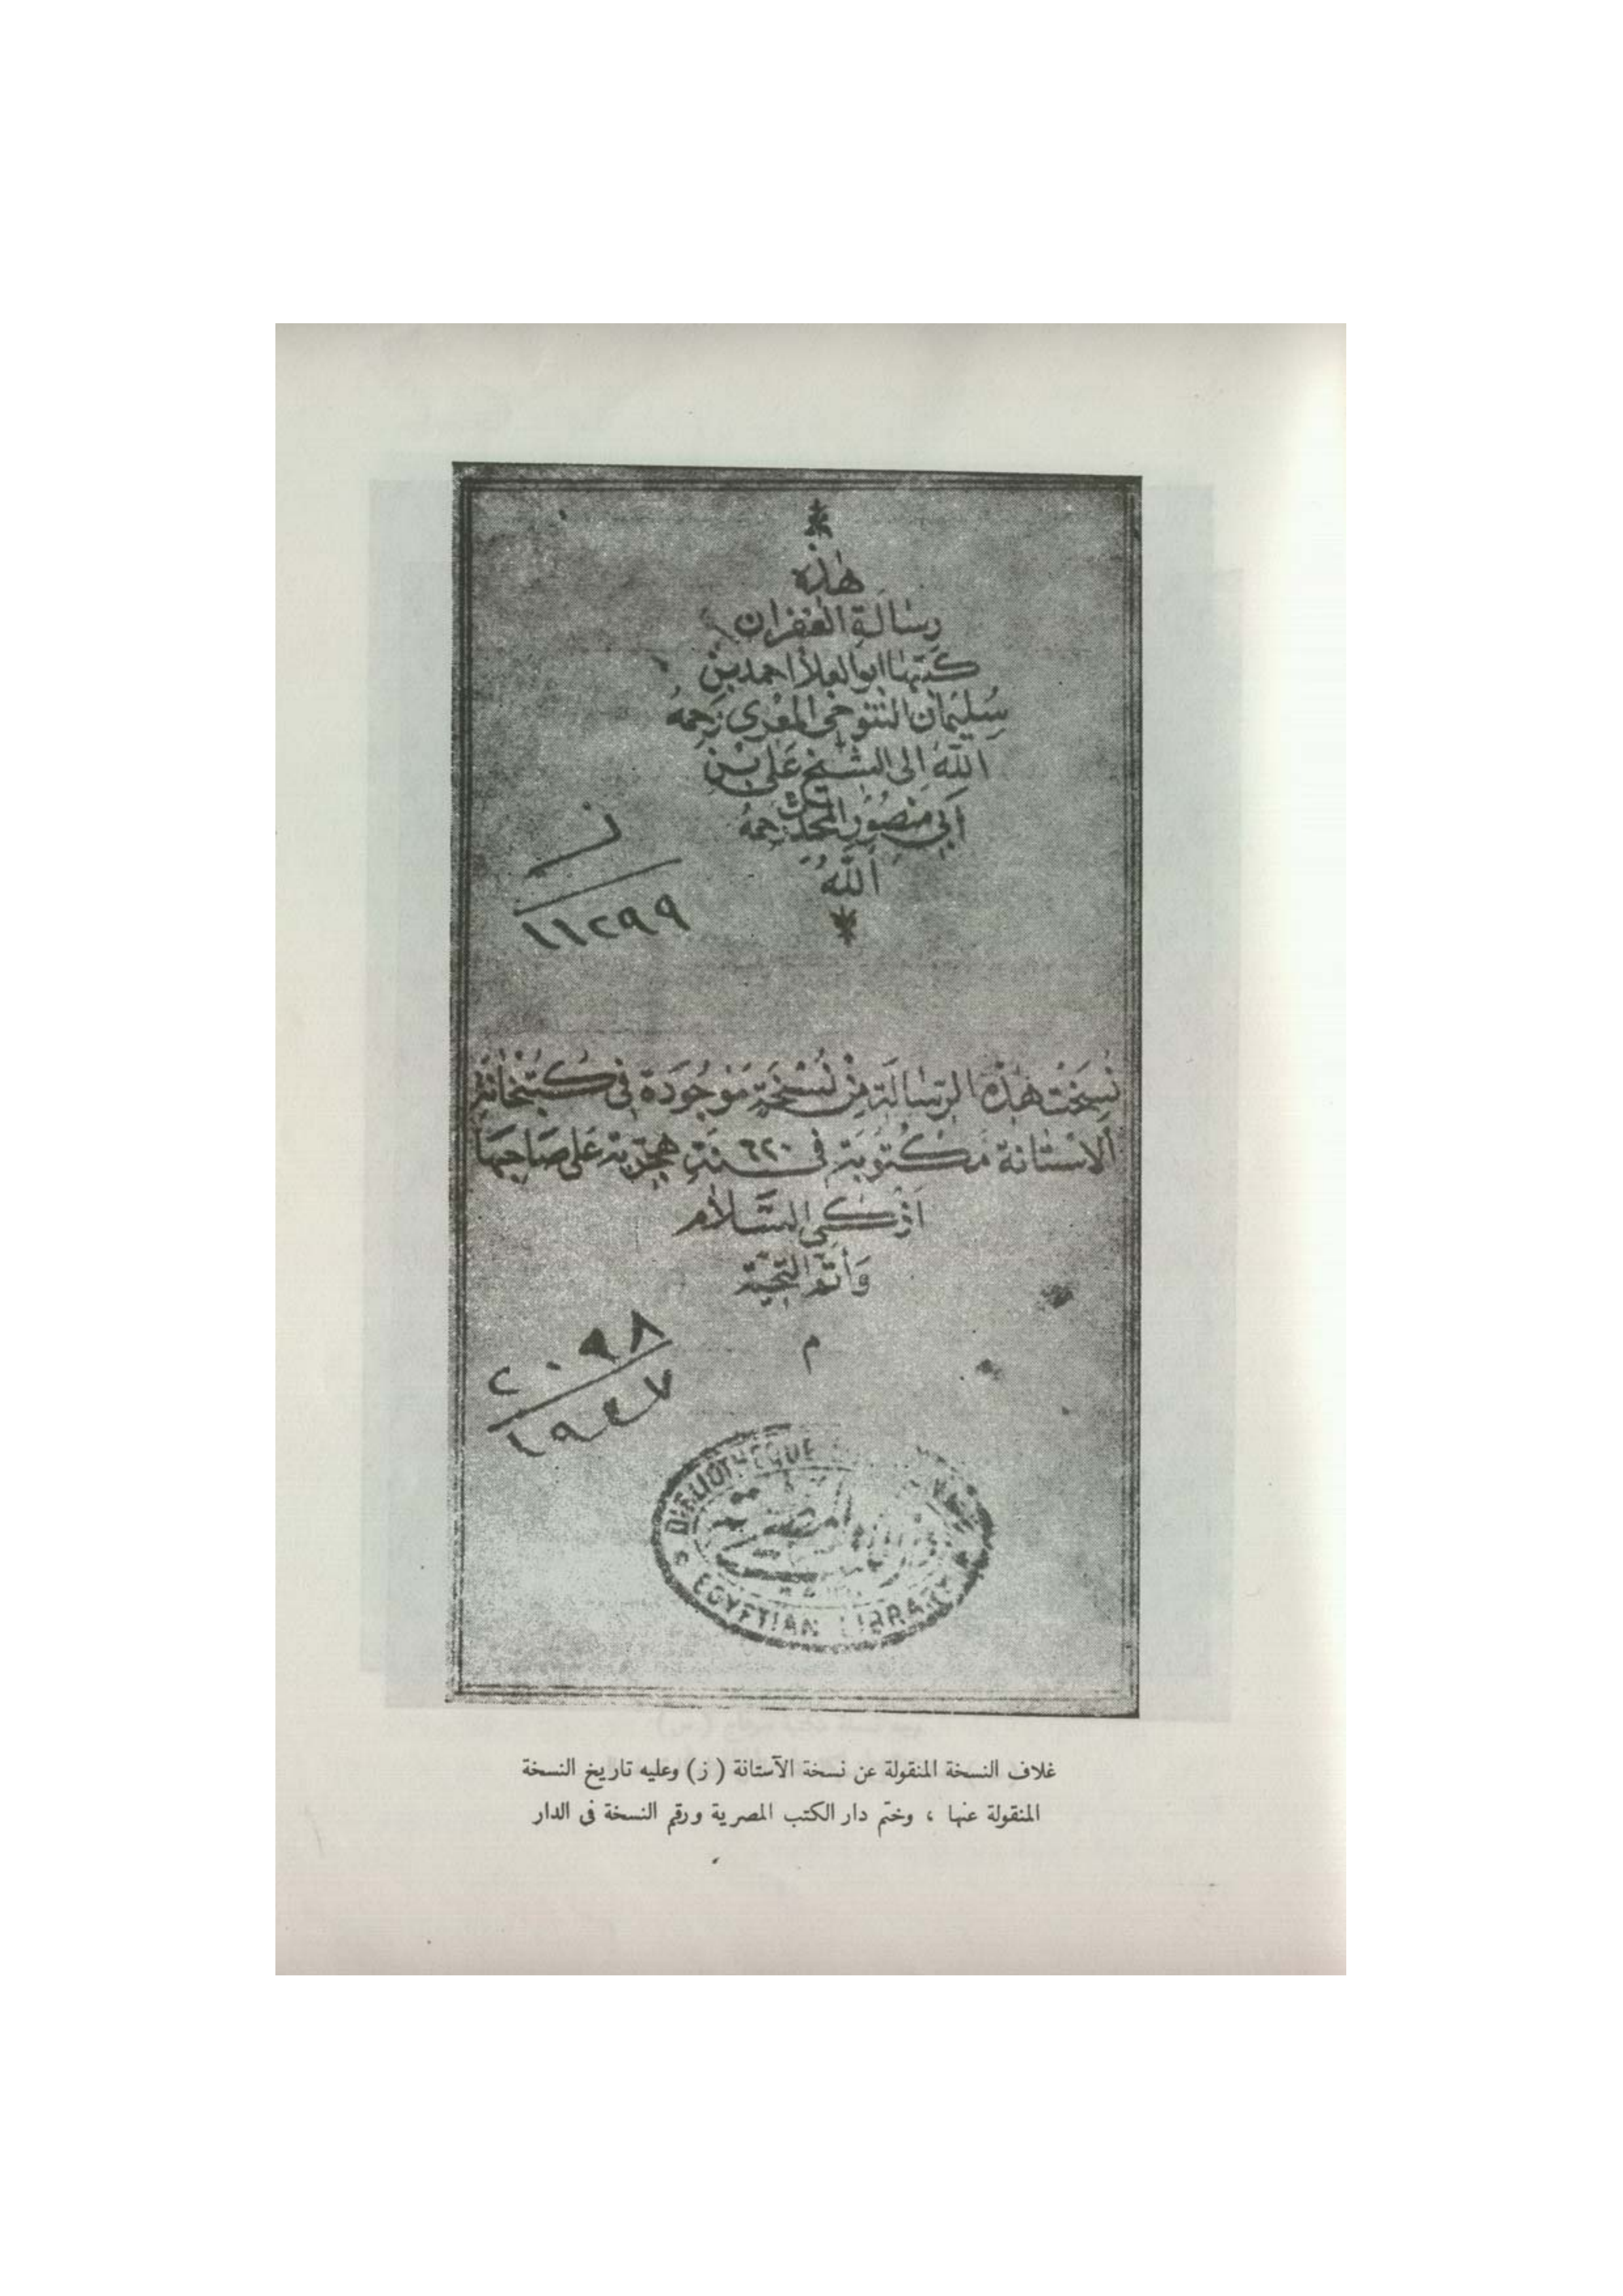 هذه
رسالة الغفران
كتبها ابوالعلا احمد بن
سليمان التنوخي المعري رحمه
الله الى الشيخ على بن
أبي منصور المحدث رحمه
الله
ز
١١٢٩٩
نسخت هذه الرسالة من نسخة موجودة في كتبخانة
الاستانة مكتوبة في سنة ٦٢٠ هجرية على صاحبها
ازكى السلام
وأتم التحية
م
٢٠٩٨
١٩٤٧
BIBLIOTHEQUE
EGYPTIAN LIBRARY
غلاف النسخة المنقولة عن نسخة الآستانة ( ز ) وعليه تاريخ النسخة
المنقولة عنها ، وختم دار الكتب المصرية ورقم النسخة فى الدار